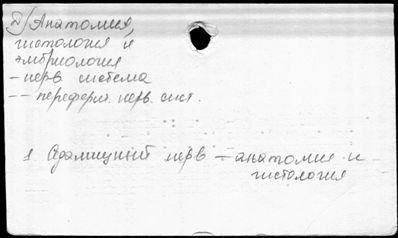 2) Анатомия,
гистология и
эмбриология
- нерв. система
-- перефери. нерв. сист.
1 Седалищный нерв - анатомия и
гистология